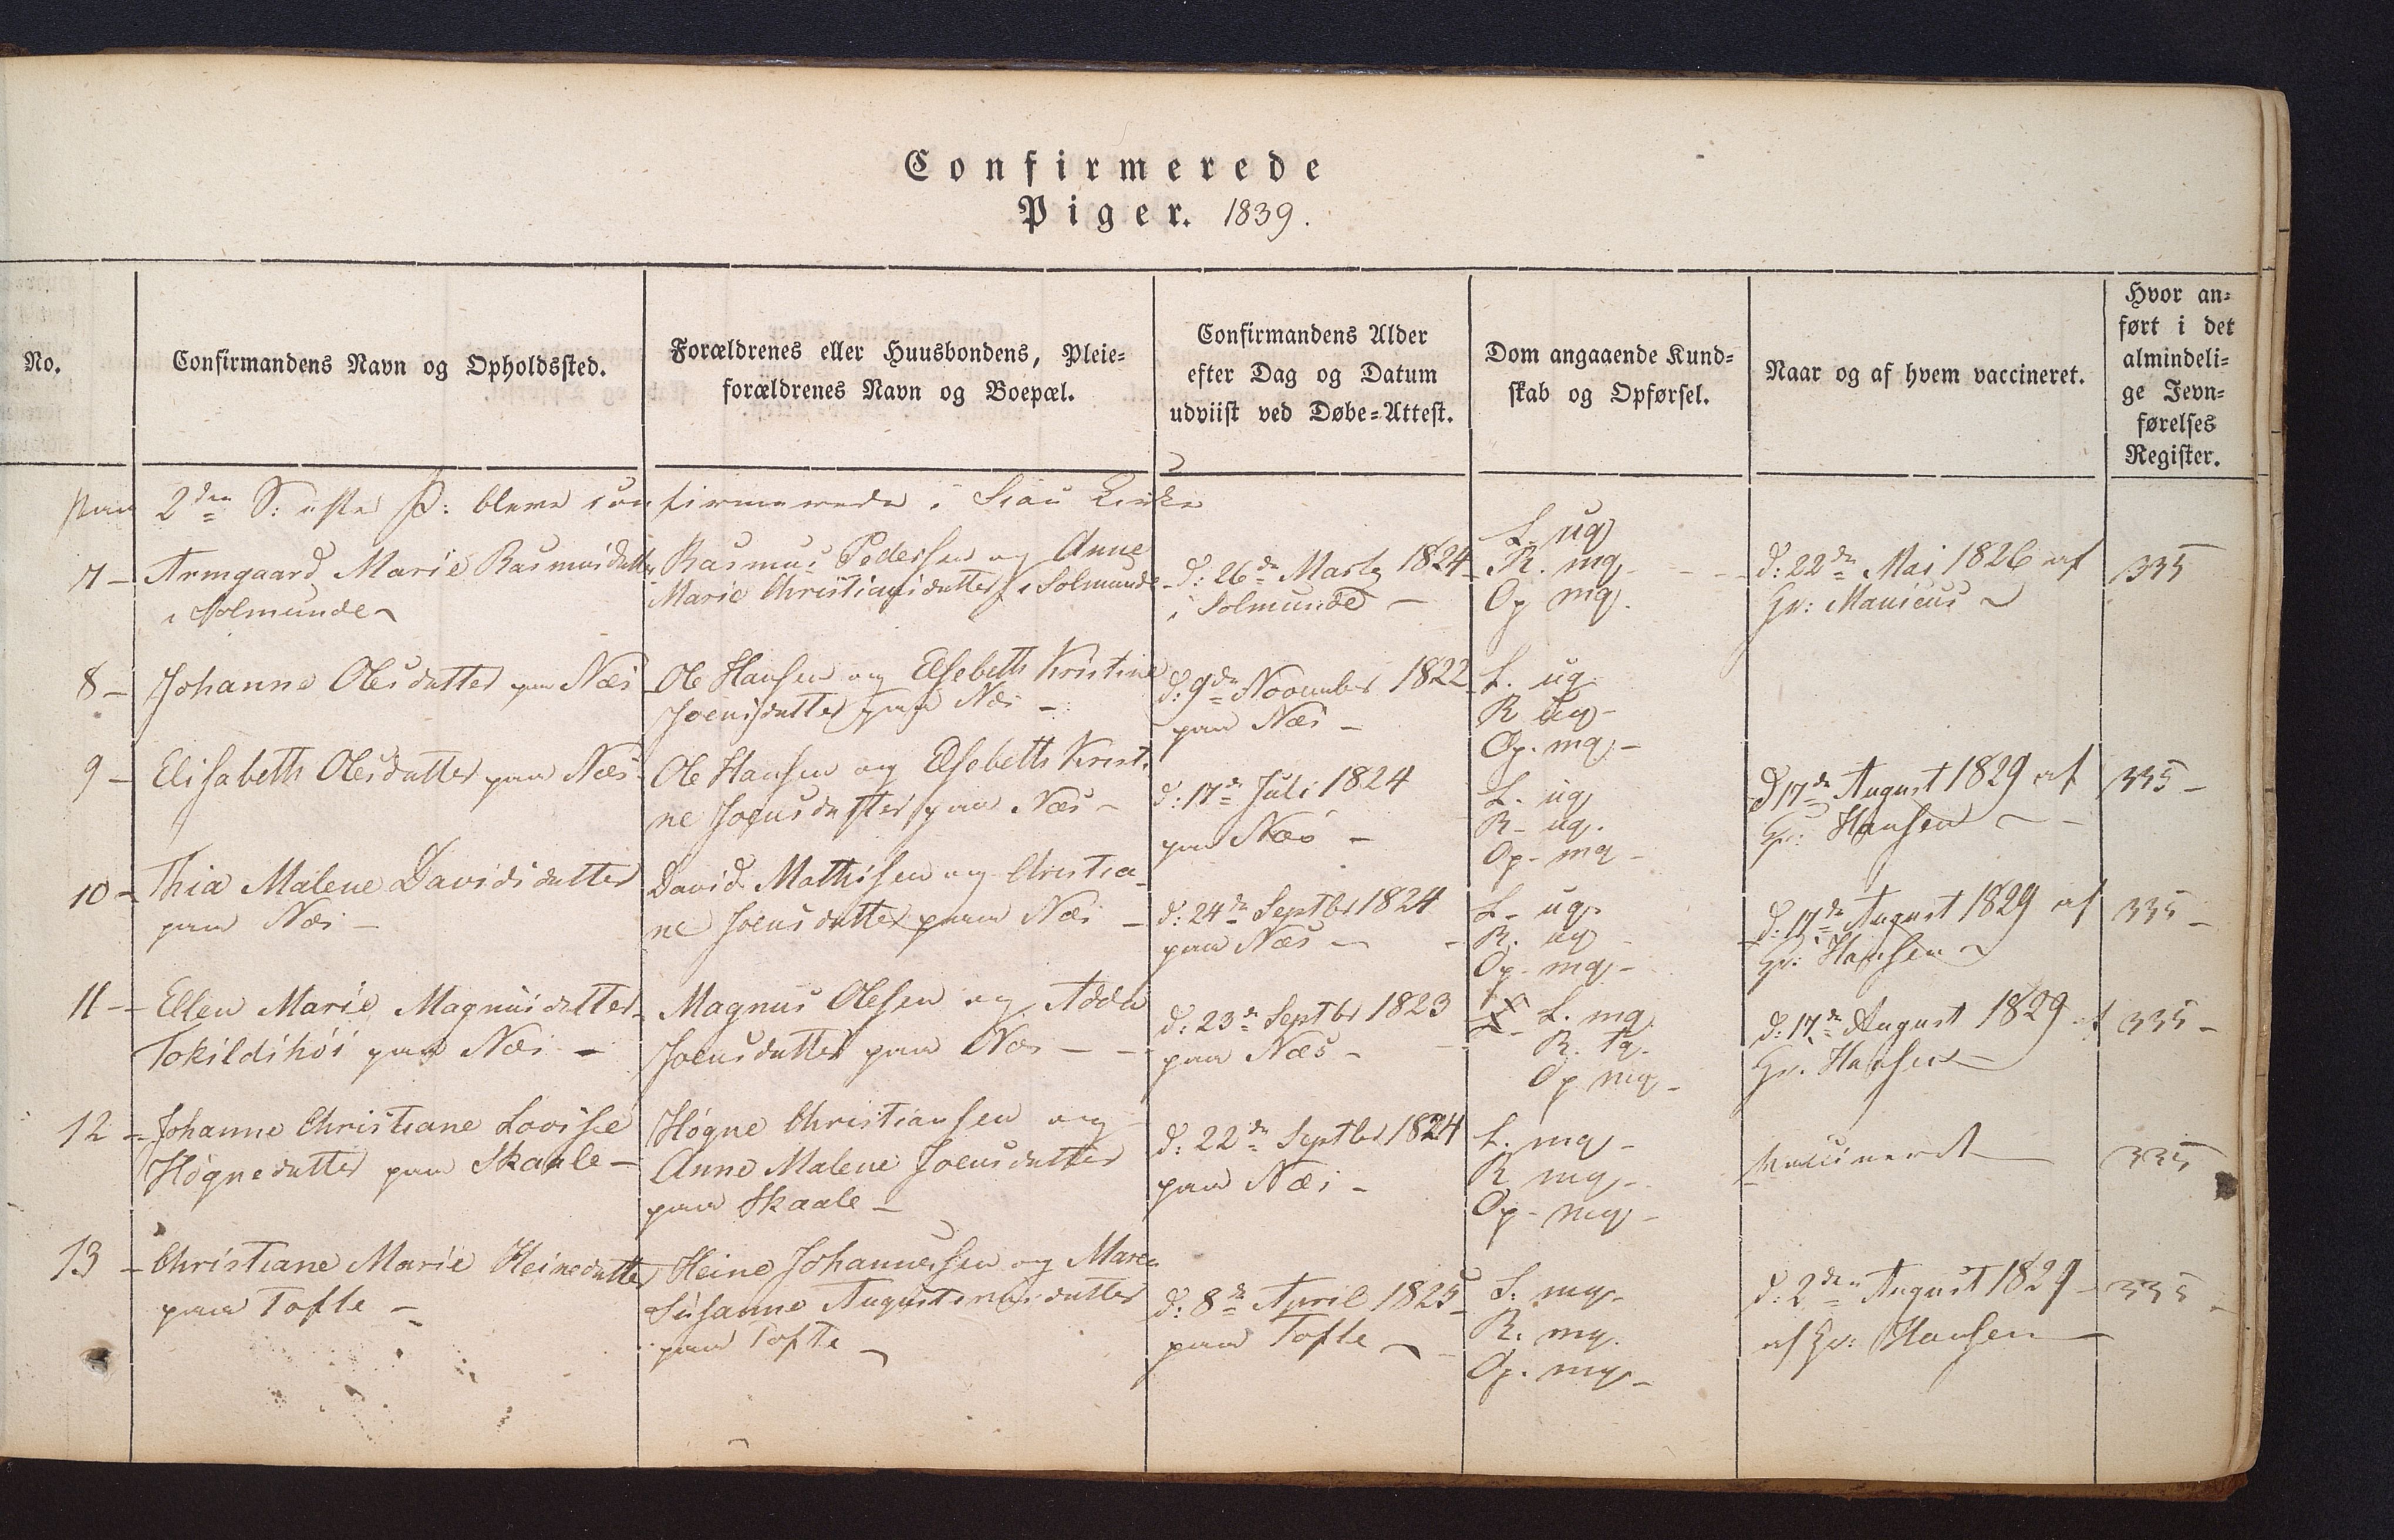 Confirmerede
Piger. 1839.
No.
Confirmandens Navn og Opholdssted.
Forældrenes eller Huusbondens, Pleie=
forældrenes Navn og Boepæl.
Confirmandens Alder
efter Dag og Datum
udviist ved Døbe=Attest.
Dom angaaende Kund=
skab og Opførsel.
Naar og af hvem vaccineret.
Hvor an=
ført i det
almindeli=
ge Jevn=
førelses
Register.
Paa 2den S: efter P: bleve confirmerede i Kirke
7 -
Armgaard Marie Rasmusdatter
i Solmunde
Rasmus Pedersen og Anne
Marie Christiansdatter i Solmunde
d: 26de Marts 1824
i Solmunde -
L. ug
R. mg.
Op mg.
d: 22de Mai 1826 af
Hr: Manicus
335
8 -
Johanne Olesdatter paa Næs
Ole Hansen og Elsebeth Kristine
Joensdatter paa Næs -
d: 9de November 1822
paa Næs -
L. ug.
R ug -
Op. mg. -
9 -
Elisabeth Olesdatter paa Næs
Ole Hansen og Elsebeth Kristi
ne Joensdatter paa Næs -
d: 17de Juli 1824
paa Næs -
L. ug
R - ug.
Op - mg -
d 17de August 1829 af
Hr: Hansen -
335 -
10 -
Thia Malene Davidsdatter
paa Næs -
David Mathisen og Christia-
ne Joensdatter paa Næs -
d: 24de Septbr 1824
paa Næs -
L - ug.
R. ug -
Op - mg. -
d: 17de August 1829 af
Hr: Hansen
335 -
11 -
Ellen Marie Magnusdatter
Tokildshøi paa Næs -
Magnus Olesen og Adda
Joensdatter paa Næs -
d: 23de Septbr 1823
paa Næs -
L. mg
R. tg.
Op mg -
d: 17de August 1829 af
Hr. Hansen -
335 -
12 -
Johanne Christiane Lovise
Høgnedatter paa Skaale -
Høgne Christiansen og
Anne Malene Joensdatter
paa Skaale -
d: 22de Septbr 1824
paa Næs -
L. mg -
R mg -
Op - mg -
vaccineret
335
13 -
Christiane Marie Heinedatter
paa Tofte -
Heine Johannesen og Maren
Susanne Augustinusdatter
paa Tofte
d: 8de April 1825
paa Tofte
L. mg -
R. mg.
Op. mg -
d: 2den August 1829 -
af Hr: Hansen -
335 -